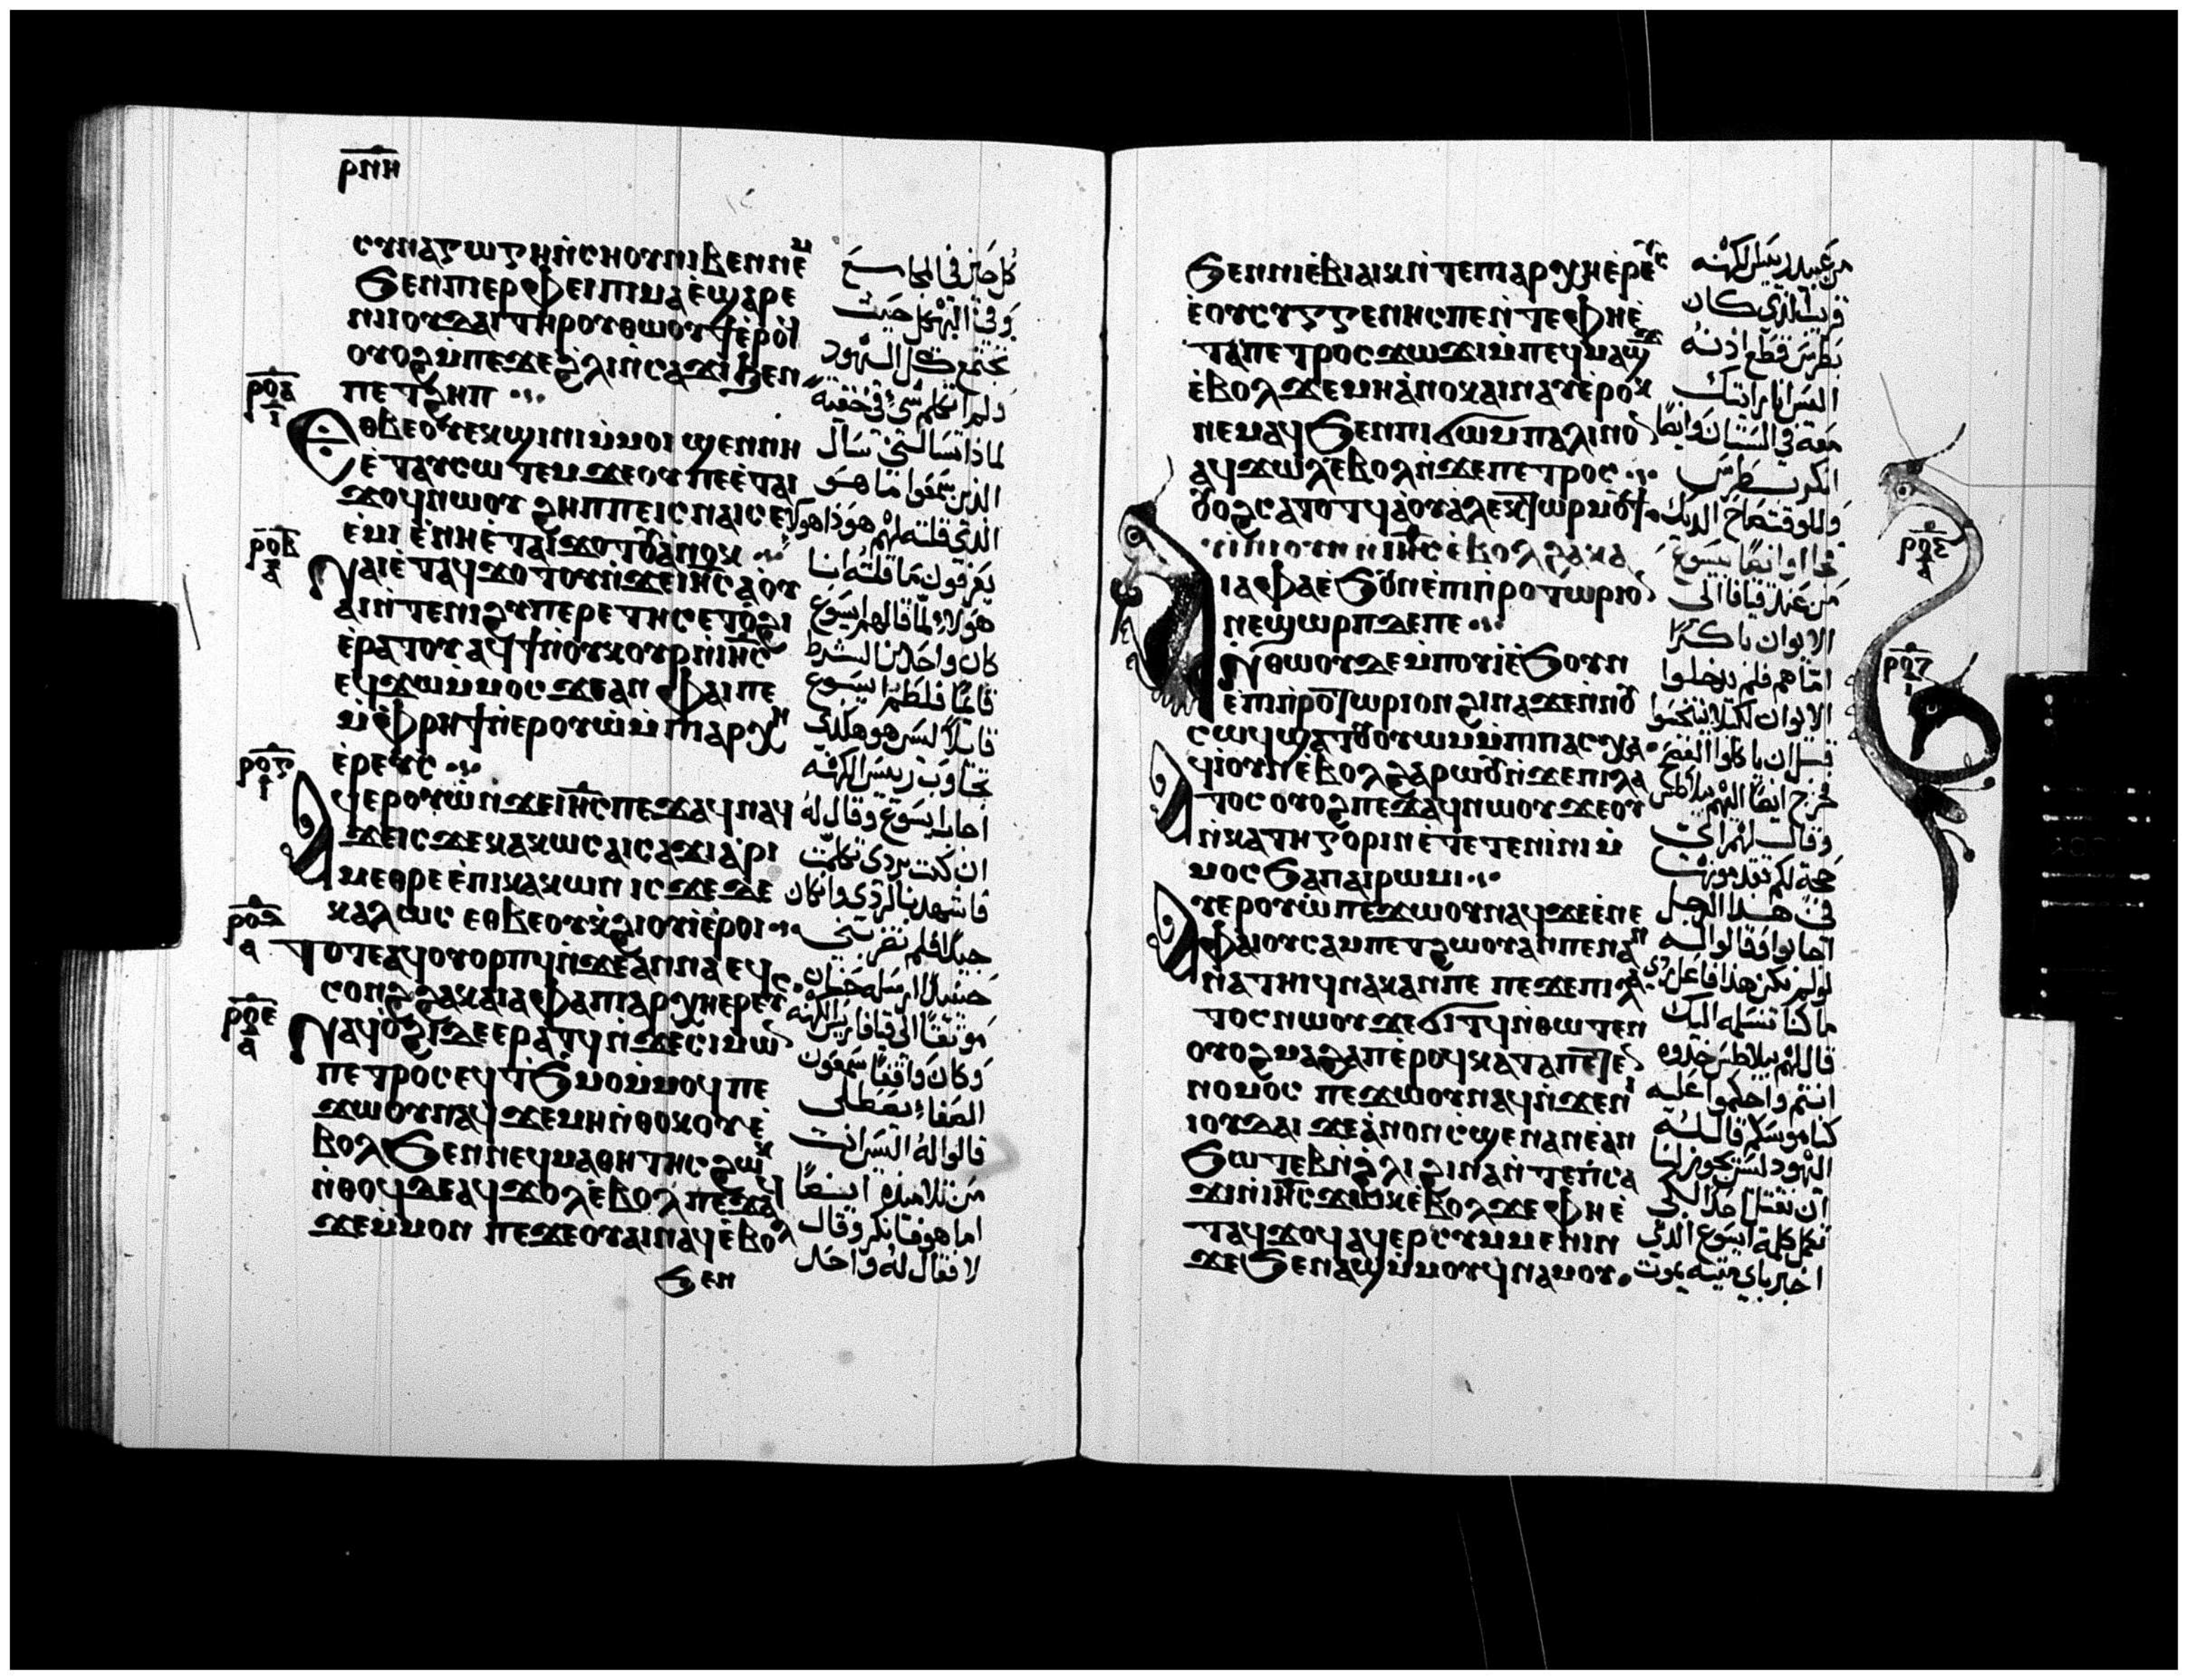 ⲣⲛⲏ
ⲥⲩⲛⲁⲅⲱⲅⲏ ⲛ̇ⲥⲏⲟⲩ ⲛⲓⲃⲉⲛ ⲛⲉⲙ
ϧⲉⲛ ⲡⲓⲉⲣⲫⲉⲓ ⲡⲓⲙⲁ ⲉ̇ϣⲁⲣⲉ
ⲛⲓⲓⲟⲩⲇⲁⲓ ⲧⲏⲣⲟⲩ ⲑⲱⲟⲩϯ ⲉ̇ⲣⲟϥ
ⲟⲩⲟϩ ⲙ̇ⲡⲉϫⲉ ϩ̀ⲗⲓ ⲛ̇ⲥⲁϫⲓ ϧⲉⲛ
ⲡⲉⲧϩⲏⲡ
ⲣⲟⲁ
ⲓ
ⲉⲑⲃⲉⲟⲩ ⲭϣⲓⲛⲓ ⲙ̇ⲙⲟⲓ ϣⲉⲛ ⲛⲏ
ⲉ̇ⲧⲁⲩⲥⲱⲧⲉⲙ ϫⲉ ⲟⲩ ⲡⲉ ⲉ̇ⲧⲁⲓ
ϫⲟϥ ⲛⲱⲟⲩ ϩⲏⲡⲡⲉ ⲓⲥ ⲛⲁⲓ ⲥⲉ
ⲉ̇ⲙⲓ ⲉ̇ⲛⲏ ⲉ̇ⲧⲁⲓϫⲟⲧⲟⲩ ⲁ̇ⲛⲟⲕ
ⲣⲟⲃ
ⲁ
ⲛⲁⲓ ⲉ̇ⲧⲁϥϫⲟⲧⲟⲩ ⲛ̇ϫⲉ ⲓⲏⲥ ⲁ̇ ⲟⲩ
ⲁⲓ ⲛ̇ⲧⲉ ⲛⲓϩⲩⲡⲉⲣⲉⲧⲏⲥ ⲉⲧⲟ̇ϩⲓ
ⲉ̇ⲣⲁⲧⲟⲩ ⲁϥϯ ⲛ̇ⲟⲩⲕⲟⲩⲣ ⲛ̇ⲓⲏⲥ
ⲉϥϫⲱ ⲙ̇ⲙⲟⲥ ϫⲉ ⲁⲛ ⲫⲁⲓ ⲡⲉ
ⲙ̇ⲫⲣⲏϯ ⲛ̇ⲉⲣⲟⲩⲱ̇ ⲙ̇ⲡⲓⲁⲣⲭⲏ
ⲉ̇ⲣⲉⲩⲥ
ⲣⲟⲅ
ⲓ
ⲁϥⲉⲣⲟⲩⲱ̇ ⲛ̇ϫⲉ ⲓⲏⲥ ⲡⲉϫⲁϥ ⲛⲁϥ
ϫⲉ ⲓⲥϫⲉ ⲕⲁⲕⲱⲥ ⲁⲓⲥⲁϫⲓ ⲁ̇ⲣⲓ
ⲙⲉⲑⲣⲉ ⲉ̇ⲡⲓⲕⲁⲕⲱⲛ ⲓⲥϫⲉ ⲇⲉ
ⲕⲁⲗⲱⲥ ⲉⲑⲃⲉⲟⲩ ⲕϩⲓⲟⲩⲓ̇ ⲉ̇ⲣⲟⲓ
ⲣⲟⲇ
ⲁ
ⲧⲟⲧⲉ ⲁϥⲟⲩⲟⲣⲡϥ ⲛ̇ϫⲉ ⲁⲛⲛⲁ ⲉϥ
ⲥⲟⲛϩ ϩⲁ ⲕⲁⲓⲁⲫⲁ ⲡⲓⲁⲣⲭⲏⲉⲣⲉⲩⲥ
ⲣⲟⲉ
ⲁ
ⲛⲁϥⲟ̇ϩⲓ ⲇⲉ ⲉⲣⲁⲧϥ ⲛ̇ϫⲉ ⲥⲓⲙⲱⲛ
ⲡⲉⲧⲣⲟⲥ ⲉϥⲧϧⲙⲟⲙ ⲙ̇ⲙⲟϥ ⲡⲉ
ϫⲱⲟⲩ ⲛⲁϥ ϫⲉ ⲙⲏ ⲛ̇ⲑⲟⲕ ⲟⲩⲉ̇
ⲃⲟⲗ ϧⲉⲛ ⲛⲉϥⲙⲁⲑⲏⲧⲏⲥ ϩⲱⲕ
ⲛ̇ⲑⲟϥ ⲇⲉ ⲁϥϫⲱⲗ ⲉ̇ⲃⲟⲗ ⲡⲉϫⲁϥ
ϫⲉ ⲙ̇ⲙⲟⲛ ⲡⲉϫⲉ ⲟⲩⲁⲓ ⲛⲁϥ ⲉ̇ⲃⲟⲗ
ϧⲉⲛ
كل حين في المجامع
وفي الهيكل حيث
تجتمع كل اليهود
ولم اتكلم شي في خفيه
لماذا تسالني سال
الذين سمعوا ما هو
الذي قلته لهم هوذا هولا
يعرفون ما قلته انا
هولا لما قالهم يسوع
كان واحد من الشرط
قايما فلطم يسوع
قايلا ليس هو هكذا
تجاوب رييس الكهنه
اجاب يسوع وقال له
ان كنت بردي تكلمت
فاشهد بالردي وان كان
جيدا فلم تضربني
حينيذ ارسله حنان
موثقا الى قيافا رييس الكهنه
وكان واقفا سمعون
الصفا يصطلي
قالوا له اليس انت
من تلاميذه ايضا
اما هو فانكر وقال
لا فقال له واحد
ϧⲉⲛ ⲛⲓⲉ̇ⲃⲓⲁⲓⲕ ⲛ̇ⲧⲉ ⲡⲓⲁⲣⲭⲏⲉ̇ⲣⲉⲩⲥ
ⲉ̇ ⲟⲩⲥⲩⲅⲅⲉⲛⲏⲥ ⲡⲉ ⲛ̇ⲧⲉ ⲫⲏ ⲉ̇
ⲧⲁ ⲡⲉⲧⲣⲟⲥ ϫⲱϫⲓ ⲙ̇ⲡⲉϥⲙⲁϣϫ
ⲉ̇ⲃⲟⲗ ϫⲉ ⲙⲏ ⲁ̇ⲛⲟⲕ ⲁⲓⲛⲁⲩ ⲉ̇ⲣⲟⲕ
ⲛⲉⲙⲁϥ ϧⲉⲛ ⲡⲓϭⲱⲙ ⲡⲁⲗⲓⲛ ⲟⲛ
ⲁϥϫⲱⲗ ⲉ̇ⲃⲟⲗ ⲛ̇ϫⲉ ⲡⲉⲧⲣⲟⲥ
ⲟⲩⲟϩ ⲥⲁⲧⲟⲧϥ ⲁ̇ ⲟⲩⲁ̇ⲗⲉⲕⲧⲱⲣ ⲙⲟⲩϯ
ⲣⲟⲋ
ⲁ
ⲁⲩⲓ̇ⲛⲓ ⲟⲩⲛ ⲛ̇ⲓⲏⲥ ⲉ̇ⲃⲟⲗ ϩⲁ ⲕⲁ
ⲓⲁⲫⲁ ⲉ̇ϧⲟⲩⲛ ⲉ̇ⲡⲓⲡⲣⲉⲧⲱⲣⲓⲟⲛ
ⲛⲉ ϣⲱⲣⲡ ⲇⲉ ⲡⲉ
ⲣⲟⲍ
ⲓ
ⲛ̇ⲑⲱⲟⲩ ⲇⲉ ⲙ̇ⲡⲟⲩⲓ̇ ⲉ̇ϧⲟⲩⲛ
ⲉ̇ⲡⲓⲡⲣⲉⲧⲱⲣⲓⲟⲛ ϩⲓⲛⲁ ϫⲉ ⲛ̇ⲛⲟⲩ
ⲥⲱϥ ϣⲁⲧⲟⲩⲟⲩⲱⲙ ⲙ̇ⲡⲓⲡⲁⲥⲭⲁ
ⲁϥⲓ̇ ⲟⲩⲛ ⲉ̇ⲃⲟⲗ ϩⲁⲣⲱⲟⲩ ⲛ̇ϫⲉ ⲡⲓⲗⲁ
ⲧⲟⲥ ⲟⲩⲟϩ ⲡⲉϫⲁϥ ⲛⲱⲟⲩ ϫⲉ ⲟⲩ
ⲛ̇ⲕⲁⲧⲏⲅⲟⲣⲓⲛ ⲉ̇ⲧⲉⲧⲉⲛⲓ̇ⲛⲓ ⲙ̇
ⲙⲟⲥ ϧⲁ ⲡⲁⲓⲣⲱⲙⲓ
ⲁⲩⲉⲣⲟⲩⲱ̇ ⲡⲉϫⲱⲟⲩ ⲛⲁϥ ϫⲉ ⲉ̇ⲛⲉ
ⲫⲁⲓ ⲟⲩⲥⲁⲙⲡⲉⲧϩⲱⲟⲩ ⲁⲛ ⲡⲉ ⲛⲁⲛ
ⲛⲁⲧⲏⲓϥ ⲛⲁⲕ ⲁⲛ ⲡⲉ ⲡⲉϫⲉ ⲡⲓⲗⲁ
ⲧⲟⲥ ⲛⲱⲟⲩ ϫⲉ ϭⲓⲧϥ ⲛ̇ⲑⲱⲧⲉⲛ
ⲟⲩⲟϩ ⲙⲁϩⲁⲡ ⲉ̇ⲣⲟϥ ⲕⲁⲧⲁ ⲡⲉⲧⲉⲛ
ⲛⲟⲙⲟⲥ ⲡⲉϫⲱⲟⲩ ⲛⲁϥ ⲛ̇ϫⲉ ⲛⲓ
ⲓⲟⲩⲇⲁⲓ ϫⲉ ⲁ̇ⲛⲟⲛ ⲥϣⲉ ⲛⲁⲛ ⲉ̇ⲁⲛ
ϧⲱⲧⲉⲃ ⲛ̇ϩ̀ⲗⲓ ϩⲓⲛⲁ ⲛ̇ⲧⲉ ⲡⲥⲁ
ϫⲓ ⲛ̇ⲓⲏⲥ ϫⲱⲕ ⲉ̇ⲃⲟⲗ ϫⲉ ⲫⲏ ⲉ̇
ⲧⲁϥϫⲟϥ ⲁϥⲉⲣⲥⲩⲙⲙⲉⲛⲓⲛ
ϫⲉ ϧⲉⲛ ⲁϣ ⲙ̇ⲙⲟⲩ ϥⲛⲁⲙⲟⲩ
من عبيد رييس الكهنه
قريب الذي كان
بطرس قطع اذنه
اليس انا رايتك
معه في البستان وايضا
انكر بطرس
وللوقت صاح الديك
فجااوا ايضا بيسوع
من عند قيافا الى
الايوان باكرا
اما هم فلم يدخلوا
الايوان لكيلا يتنجسوا
قبل ان ياكلوا الفصح
فخرج ايضا اليهم بيلاطس
وقال لهم اي
حجة لكم تقدمونها
في هذا الرجل
اجابوا فقالوا له
لو لم يكن هذا فاعل ردي
ما كنا نسلمه اليك
قال لهم بيلاطس خذوه
انتم واحكموا عليه
كناموسكم قال له
اليهود ليس يجوز لنا
ان نقتل احدا لكي
تكمل كلمة يسوع الذي
اخبر باي ميته يموت